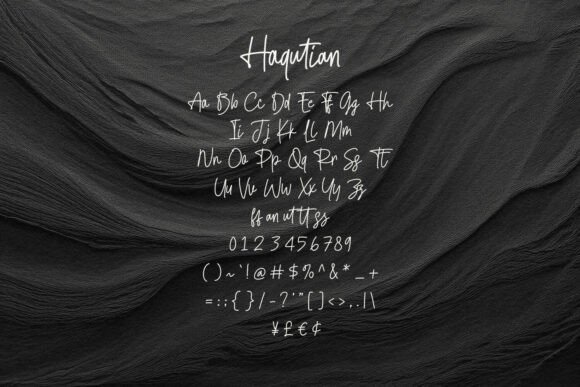 Haqutian
Aa Bb Cc Dd Ee Ff Gg Hh
Ii Jj Kk Ll Mm
Nn Oo Pp Qq Rr Ss Tt
Uu Vv Ww Xx Yy Zz
ff an ut tt ss
0123456789
()~`!@#$%^&*_+
=:;{}/-?'"[]<>,.|\
¥£€¢